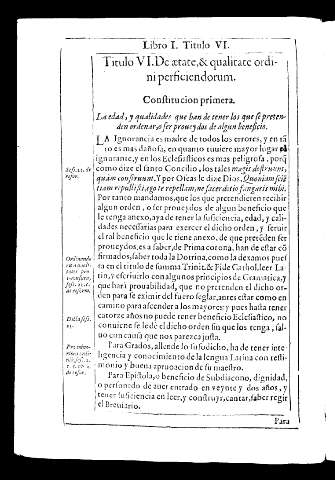 Libro I. Titulo VI.
Titulo VI. De ætate, & qualitate ordi-
ni perficiendorum.
Constitucion primera.
La edad, y qualidades que han de tener los que se preten-
den ordenar, o ser proueydos de algun beneficio.
LA Ignorancia es madre de todos los errores, y en tã
to es mas dañosa, en quanto tuuiere mayor lugar el
ignorante, y en los Eclesiasticos es mas peligrosa, porq̃
como dize el santo Concilio, los tales magis destruunt,
quam construunt. Y por Oseas le dize Dios. Quoniam sciẽ
tiam repulisti, ego te repellam, ne sacerdotio fungaris mihi.
Por tanto mandamos, que los que pretendieren recibir
algun orden, o ser proueydos de algun beneficio que
le tenga anexo, aya de tener la suficiencia, edad, y cali-
dades necessarias para exercer el dicho orden, y seruir
el tal beneficio que le tiene anexo, de que pretẽden ser
proueydos, es a saber, de Prima corona, han de estar cõ
firmados, saber toda la Dotrina, como la dexamos pues
ta en el titulo de summa Trinit. & Fide Cathol. leer La-
tin, y escriuirlo con algunos principios de Gramatica, y
que hara prouabilidad, que no pretenden el dicho or-
den para se eximir del fuero seglar, antes estar como en
camino para ascender a los mayores: y pues hasta tener
catorze años no puede tener beneficio Eclesiastico, no
conuiene se le dè el dicho orden sin que los tenga, sal-
uo con causa que nos parezca justa.
Para Grados, allende lo susodicho, ha de tener inte-
ligencia y conocimiento de la lengua Latina con testi-
monio y buena aprouacion de su maestro.
Para Epistola, o beneficio de Subdiacono, dignidad,
o personado de auer entrado en veynte y dos años, y
tener suficiencia en leer, y construyr, cantar, saber regir
el Breuiario.
Para
Ordinandi
Dicta sess.